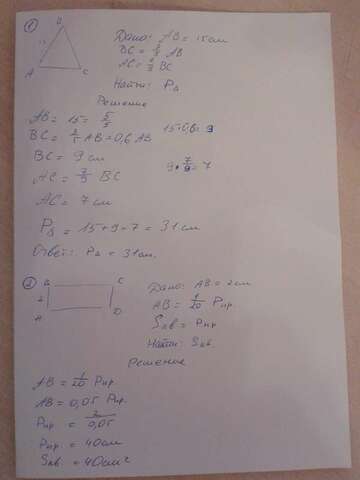 ① B
15
A C
Дано: AB = 15 см
BC = 3/5 AB
AC = 7/9 BC
Найти: P△
Решение
AB = 15 = 5/5
15 · 0,6 = 9
BC = 3/5 AB = 0,6 AB
BC = 9 см
9 · 7/9 = 7
AC = 7/9 BC
AC = 7 см
P△ = 15 + 9 + 7 = 31 см
Ответ: P△ = 31 см.
② B C
2
A D
Дано: AB = 2 см
AB = 1/20 Pпр.
Sкв = Pпр
Найти: Sкв.
Решение
AB = 1/20 Pпр.
AB = 0,05 Pпр.
Pпр = 2/0,05
Pпр = 40 см
Sкв = 40 см²